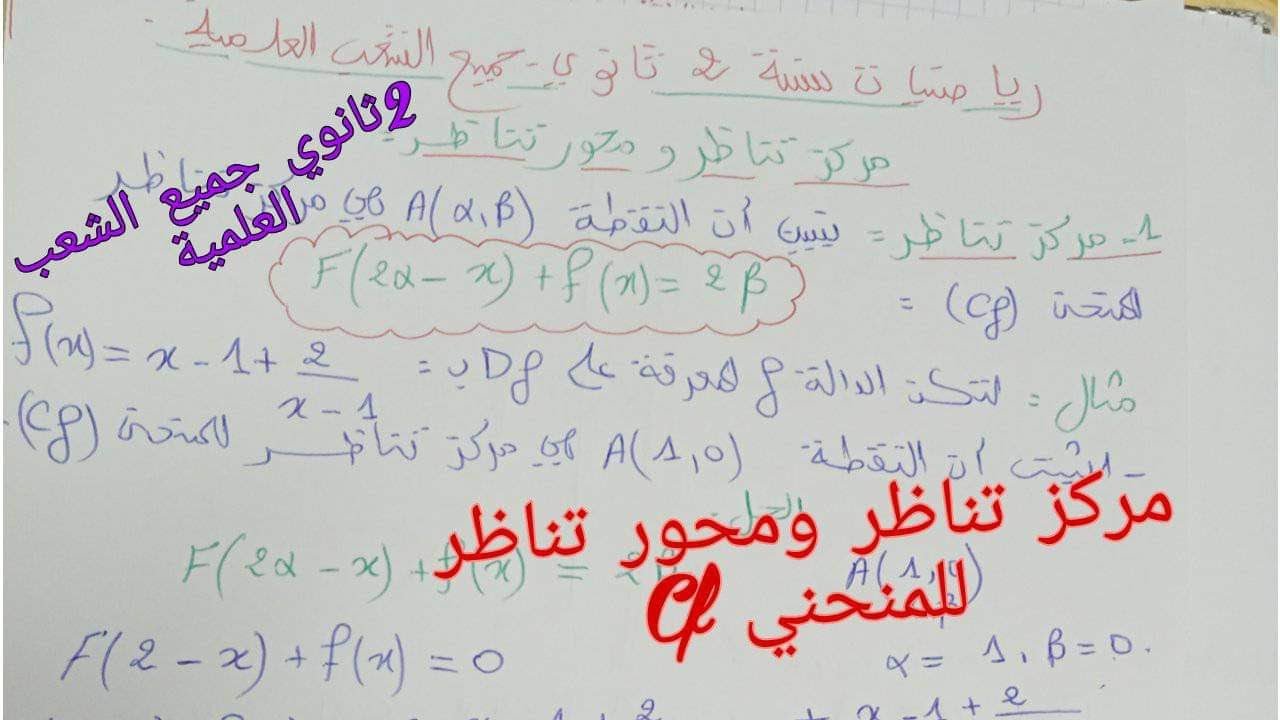 رياضيات سنة 2 ثانوي - جميع الشعب العلمية
2 ثانوي جميع الشعب
العلمية
مركز تناظر و محور تناظر =
1- مركز تناظر = يتبين أن النقطة A(α,β) هي مركز تناظر
للمنحنى (Cf) =
F(2α - x) + f(x) = 2β
مثال = لتكن الدالة f المعرفة على Df ب =
f(x) = x - 1 + 2/(x - 1)
- اثبت أن النقطة A(1,0) هي مركز تناظر للمنحنى (Cf).
الحل
مركز تناظر ومحور تناظر
للمنحني Cf
F(2α - x) + f(x) =
A(1,
F(2 - x) + f(x) = 0
α = 1, β = 0.
+ x - 1 + 2